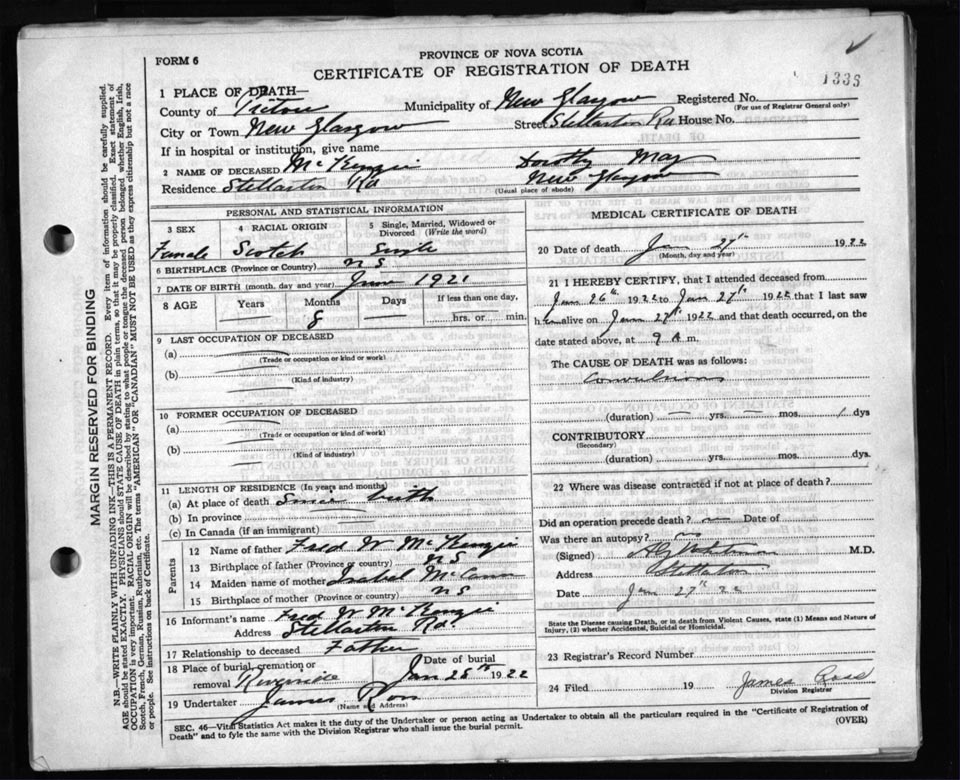 FORM 6
PROVINCE OF NOVA SCOTIA
CERTIFICATE OF REGISTRATION OF DEATH
1335
1 PLACE OF DEATH—
County of Pictou Municipality of New Glasgow Registered No.
(For use of Registrar General only)
City or Town New Glasgow Street Stellarton Rd. House No.
If in hospital or institution, give name
2 NAME OF DECEASED McKenzie Dorothy May
Residence Stellarton Rd New Glasgow
(Usual place of abode)
PERSONAL AND STATISTICAL INFORMATION
3 SEX 4 RACIAL ORIGIN 5 Single, Married, Widowed or Divorced (Write the word)
Female Scotch Single
6 BIRTHPLACE (Province or Country) N S
7 DATE OF BIRTH (month, day and year) June 1921
8 AGE Years Months Days If less than one day,
8 hrs. or min.
9 LAST OCCUPATION OF DECEASED
(a)
(Trade or occupation or kind or work)
(b)
(Kind of industry)
10 FORMER OCCUPATION OF DECEASED
(a)
(Trade or occupation or kind of work)
(b)
(Kind of industry)
11 LENGTH OF RESIDENCE (In years and months)
(a) At place of death Since birth
(b) In province
(c) In Canada (if an immigrant)
Parents
12 Name of father Fred W McKenzie
13 Birthplace of father (Province or country) N S
14 Maiden name of mother Isabel McCann
15 Birthplace of mother (Province or country) N S
16 Informant's name Fred W McKenzie
Address Stellarton Rd.
17 Relationship to deceased Father
18 Place of burial, cremation or removal Riverside Date of burial Jan 28th 1922
19 Undertaker James Ross
(Name and Address)
MEDICAL CERTIFICATE OF DEATH
20 Date of death Jan 27th 1922
(Month, day and year)
21 I HEREBY CERTIFY, that I attended deceased from
Jan 26th 1922 to Jan 27th 1922 that I last saw
her alive on Jan 27th 1922 and that death occurred, on the
date stated above, at 9 A m.
The CAUSE OF DEATH was as follows:
Convulsions
(duration) — yrs. — mos. 1 dys
CONTRIBUTORY
(Secondary)
(duration) yrs. mos. dys
22 Where was disease contracted if not at place of death?
Did an operation precede death? Date of
Was there an autopsy? no
(Signed) M.D.
Address Stellarton
Date Jan 27th 22
State the Disease causing Death, or in death from Violent Causes, state (1) Means and Nature of
Injury, (2) whether Accidental, Suicidal or Homicidal.
23 Registrar's Record Number
24 Filed 19 James Ross
Division Registrar
SEC. 46—Vital Statistics Act makes it the duty of the Undertaker or person acting as Undertaker to obtain all the particulars required in the "Certificate of Registration of
Death" and to fyle the same with the Division Registrar who shall issue the burial permit.
(OVER)
MARGIN RESERVED FOR BINDING
N.B.—WRITE PLAINLY WITH UNFADING INK—THIS IS A PERMANENT RECORD. Every item of information should be carefully supplied.
AGE should be stated EXACTLY. PHYSICIANS should STATE CAUSE OF DEATH in plain terms, so that it may be properly classified. Exact statement of
OCCUPATION is very important. RACIAL ORIGIN will be described by stating to what people or tongue the deceased person belonged whether English, Irish,
Scotch, French, German, Russian, Ruthenian, etc. The terms "AMERICAN" OR "CANADIAN" MUST NOT BE USED as they express citizenship but not a race
or people. See instructions on back of Certificate.